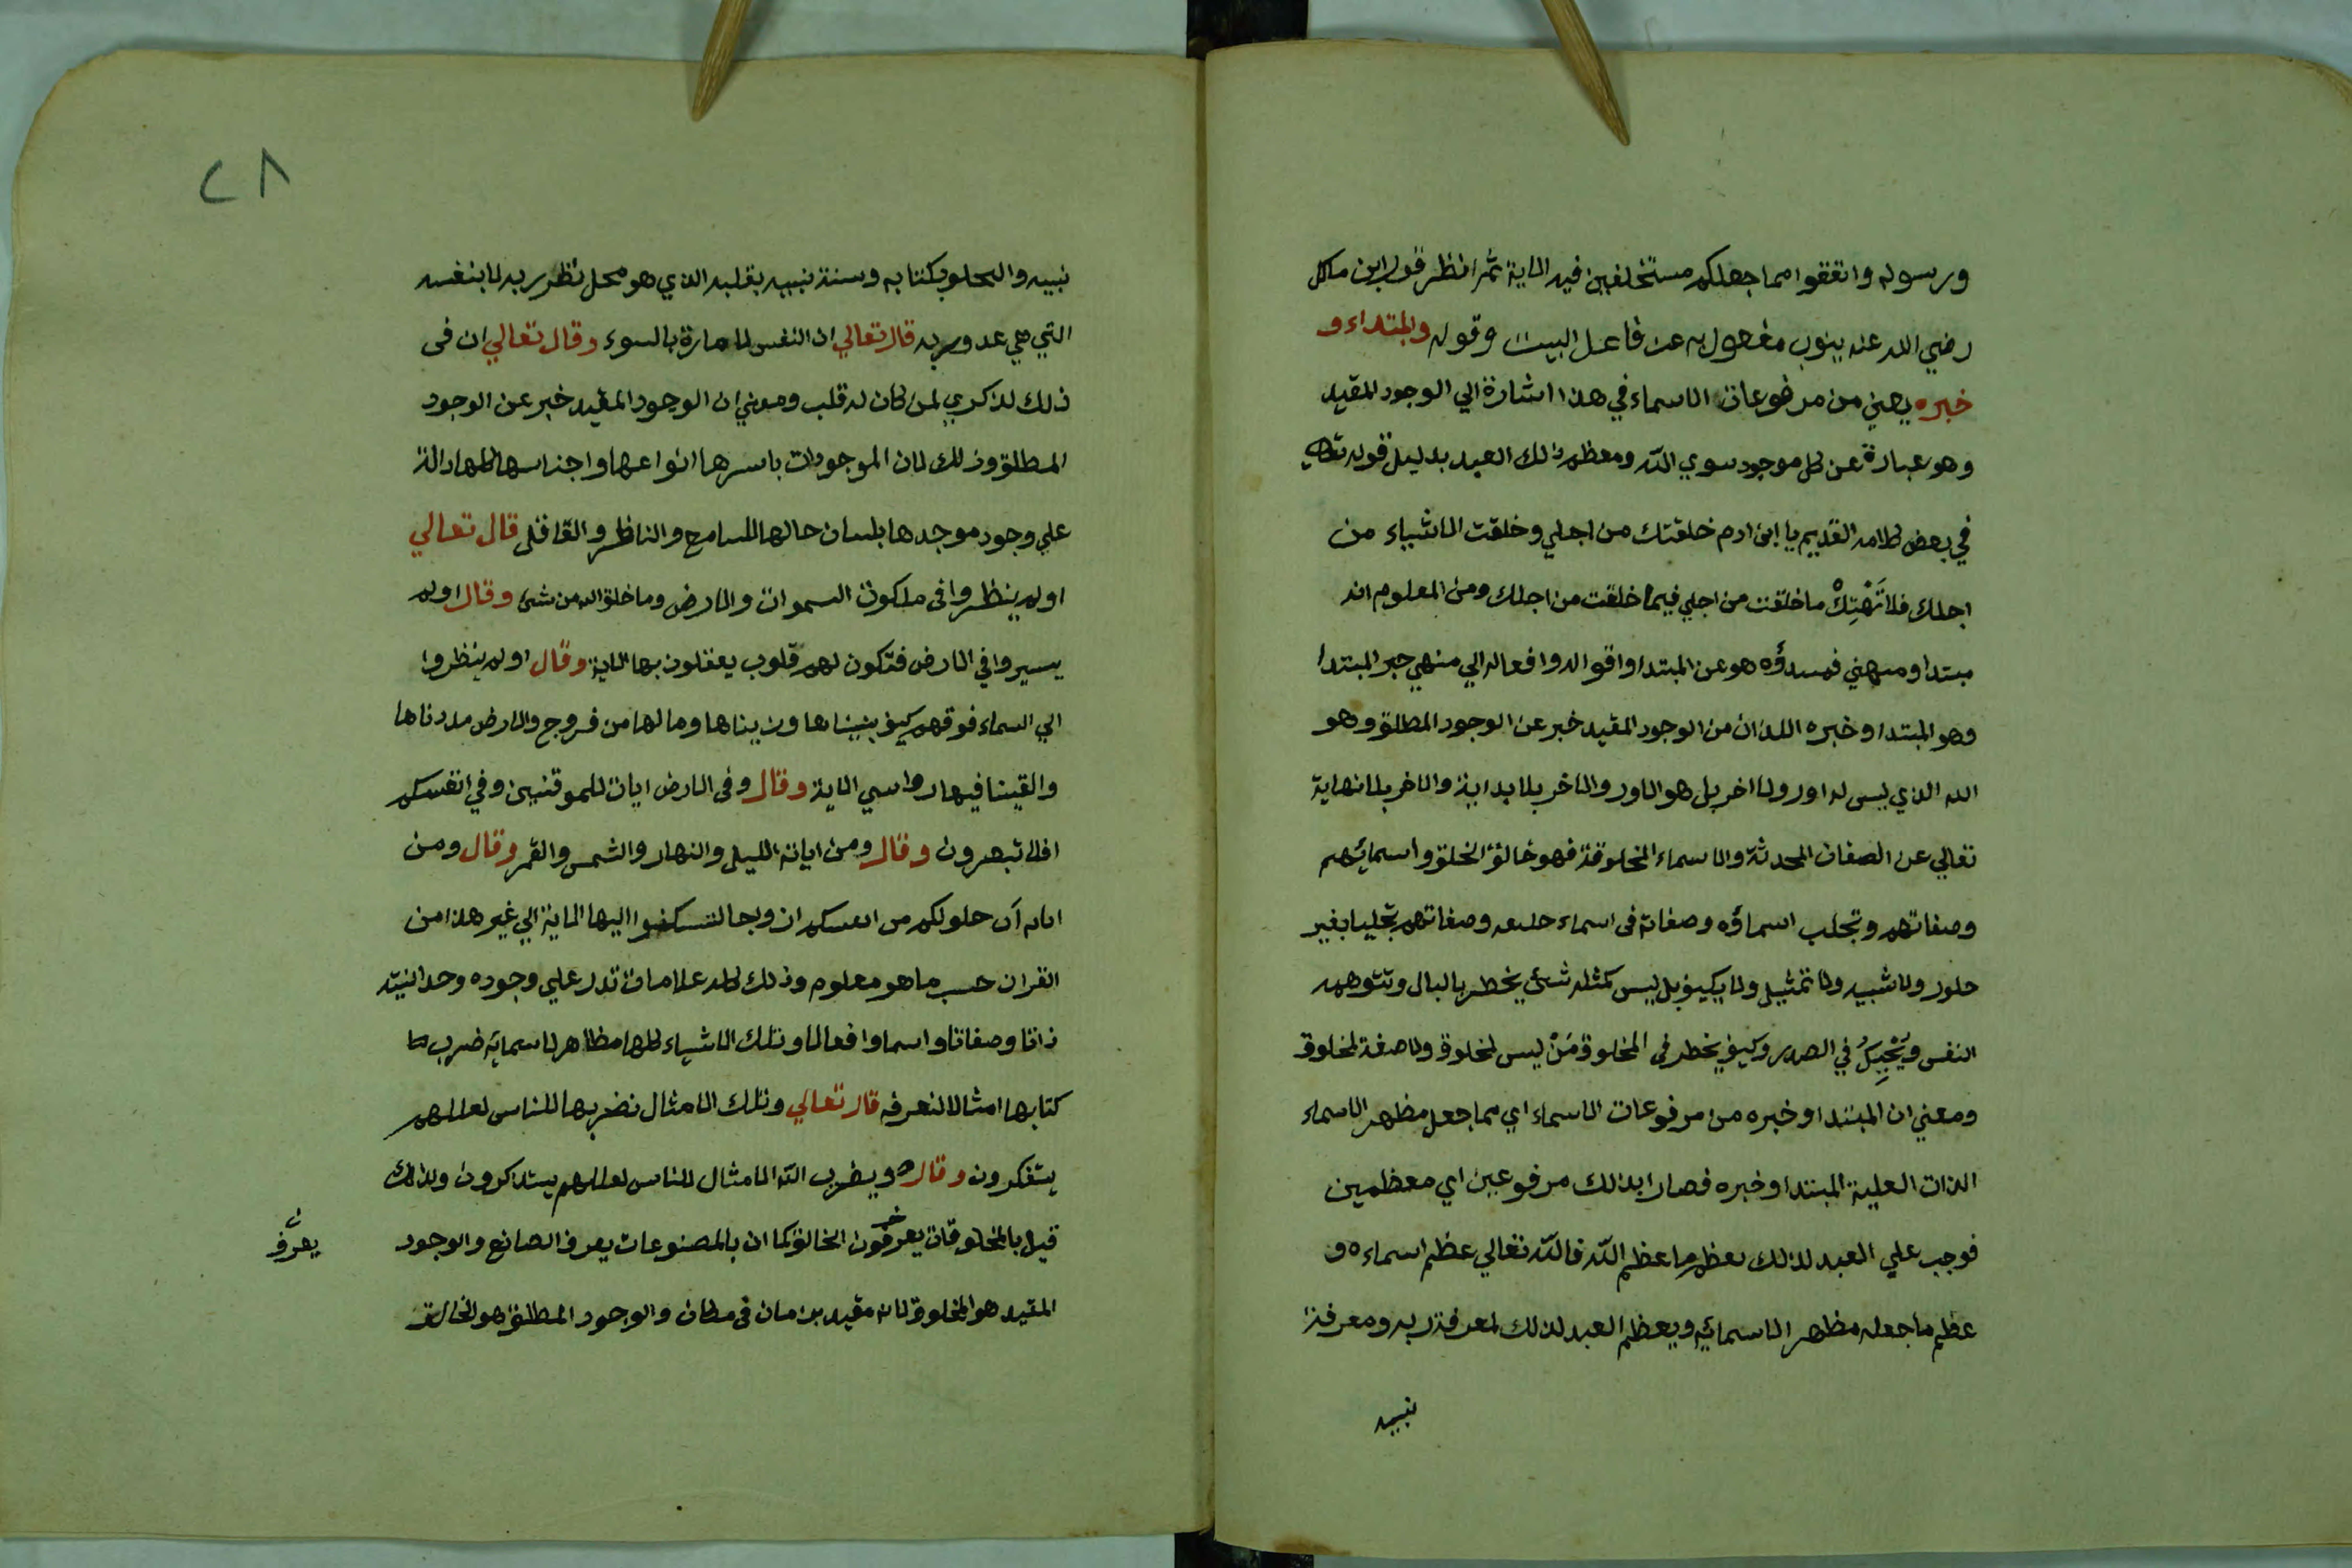 ورسوله وانفقوا مما جعلكم مستخلفين فيه الاية ثم انظر قول ابن مالك
رضي الله عنه ينوب مفعول به عن فاعل البيت وقوله والمبتداء و
خبره يعني من مرفوعات الاسماء في هذا اشارة الي الوجود المقيد
وهو عبارة عن كل موجود سوي الله ومعظم ذلك العبد بدليل قوله تعالي
في بعض كلامه القديم يا ابن ادم خلقتك من اجلي وخلقت الاشياء من
اجلك فلا تَهْتِكْ ما خلقت من اجلي فيما خلقت من اجلك ومن المعلوم انه
مبتدا ومنهي فمبدؤه هو عن المبتدا واقواله وافعاله الي منهي خبر المبتدا
وهو المبتدا وخبره اللذان من الوجود المقيد خبر عن الوجود المطلق وهو
الله الذي ليس له اول ولا اخر بل هو الاول والاخر بلا بداية والاخر بلا نهاية
تعالي عن الصفات المحدثة والاسماء المخلوقة فهو خالق الخلق واسمائهم
وصفاتهم وتجلت اسماؤه وصفاته في اسماء خلقه وصفاتهم تجليا بغير
حلول ولا شبيه ولا تمثيل ولا يكيف بل ليس كمثله شئ يخطر بالبال وتتوهمه
النفس في الصدر وكيف يخطر في المخلوق مَنْ ليس لمخلوق ولا صفة لمخلوق
ومعني ان المبتدا وخبره من امرفوعات الاسماء اي مما جعل مظهر الاسماء
الذات العلية المبتدا وخبره فصارا بذالك مرفوعين اي معظمين
فوجب علي العبد لذلك يعظم ما عظم الله فالله تعالي عظم اسماءه و
عظم ما جعله مظهر الاسمائه ويعظم العبد لذلك لمعرفة ربه ومعرفة
نبيه
٢٨
نبيه والبكتابه وسنة نبيه بقلبه الذي هو محل نظر ربه لا بنفسه
التي هي عدو ربه قال تعالي ان النفس لامارة بالسوء وقال تعالي ان في
ذلك لذكري لمن كان له قلب ومعني ان الوجود المقيد خبر عن الوجود
المطلق وذلك لان الموجودات باسرها انواعها واجناسها كلها دالة
علي وجود موجدها بلسان حالها للسامع والناظر والعاقل قال تعالي
اولم ينظروا في ملكوت السموات والارض وما خلق الله من شئ وقال اولم
يسيروا في الارض فتكون لهم قلوب يعقلون بها الاية وقال اولم ينظروا
الي السماء فوقهم كيف بنيناها وزيناها وما لها من فروج والارض مددناها
والقينا فيها رواسي الاية وقال وفي الارض ايات للموقنين وفي انفسكم
افلا تبصرون وقال ومن اياته الليل والنهار والشمس والقمر وقال ومن
اياته ان خلق لكم من انفسكم ازواجا لتسكنوا اليها الاية الي غير هذا من
القران حسب ما هو معلوم وذلك كله علامات تدل علي وجوده وحدانيته
ذاتا وصفاتا واسما وافعالا وتلك الاشياء كلها مظاهر لاسمائه ضرب لنا
كتابها امثالا لنعرفه قال تعالي وتلك الامثال نضربها للناس لعلهم
يتفكرون وقال ويضرب الله الامثال للناس لعلهم يتذكرون ولذلك
قيل بالمخلوقات يعرفون الخالق كما ان بالمصنوعات يعرف الصانع والوجود
يعرف
المقيد هو المخلوق لانه مقيد بزمان في مكان والوجود المطلق هو الخالق